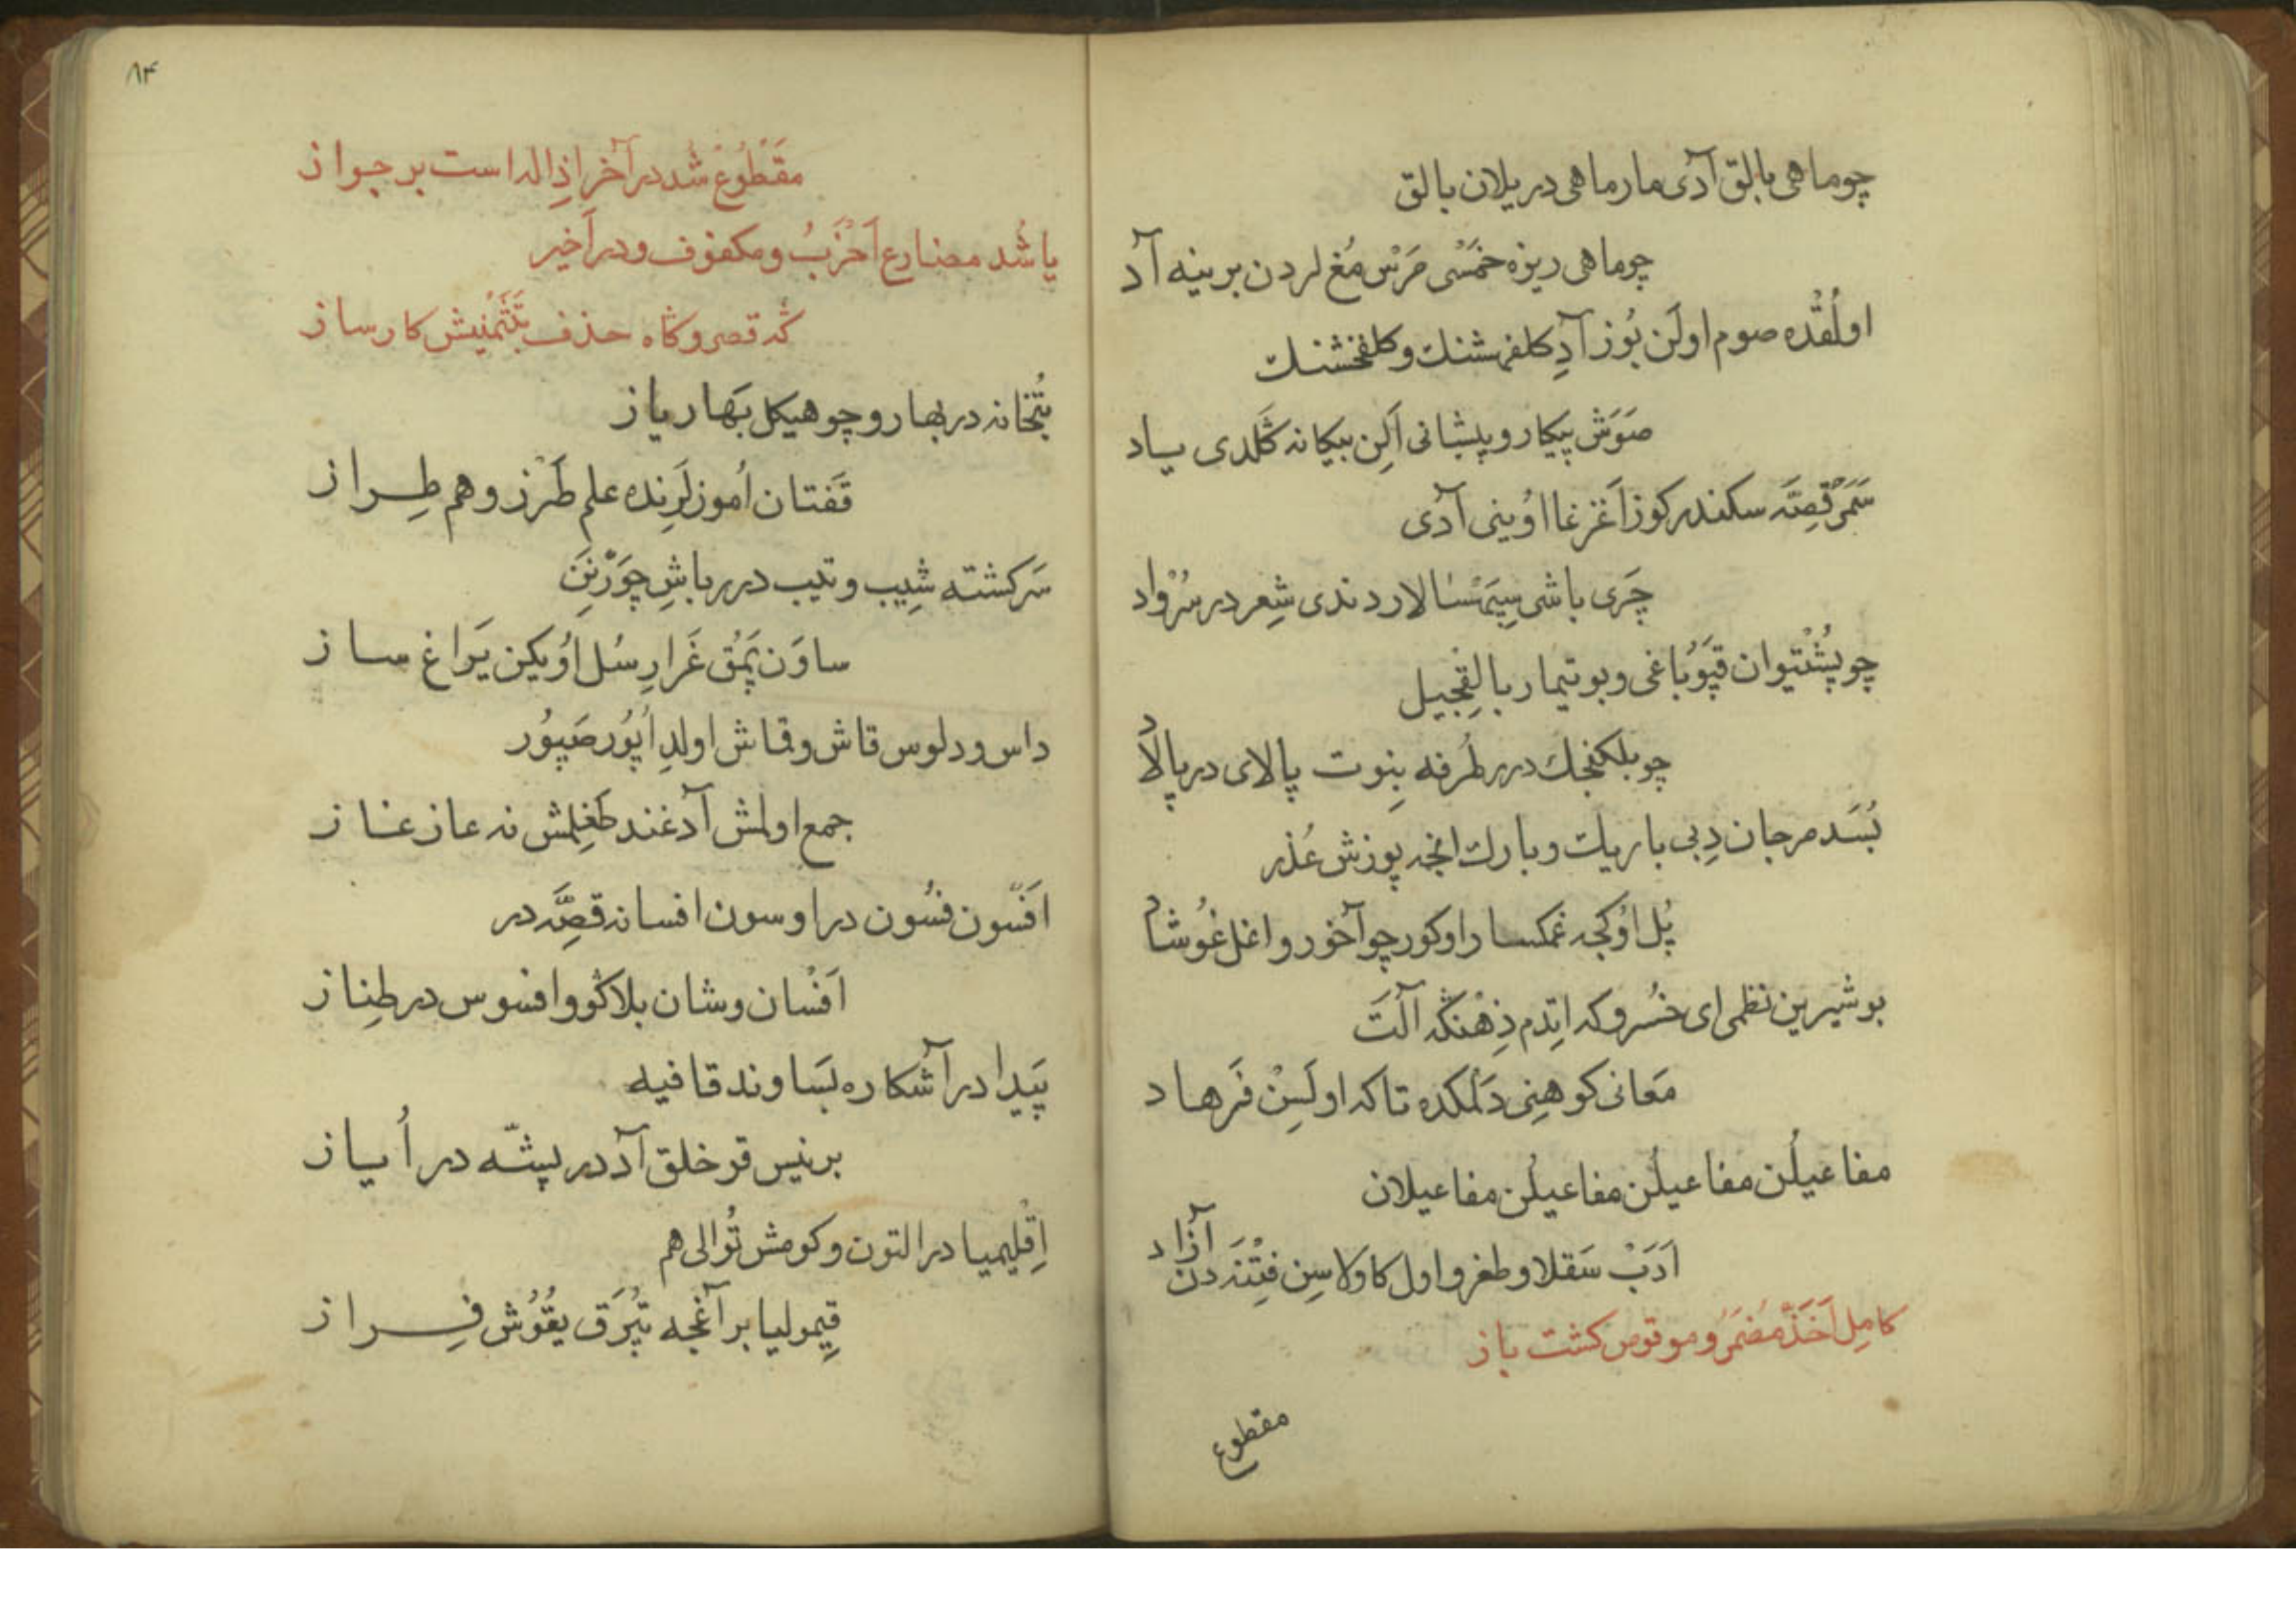 چو ماهی بالق آدی مار ماهی در یلان بالق
چو ماهی ریزه خمسی مرس مغ لردن برینه آد
اولقده صوم اولن بوز آد کلفهشنك و کلفخشنك
صوش پیکار و پیشانی الن بیکانه كلدی یاد
سمر قصته سکندر کوز اغرغا اوینی آدی
چری باشی سپهسالار دندی شعر در سرواد
چو پشتیوان قپو باغی و بوتیمار بالقجیل
چو بلکنجك در طرفه بنوت پالای در پالاد
بسد مرجان دبی باریك و بارك انجه پوزش عذر
پل اوکجه غمکسار اوکور چو آخور و اغل غوشاد
بو شیرین نظمی ای خسرو که ایتدم ذهنكه آلت
معانی کوهنی دلمکده تا که اولسن فرهاد
مفاعیلن مفاعیلن مفاعیلن مفاعیلان
ادب سقلا و طغرو اول کاولاسن فتنه دن آزاد
کامل احذ مضمر و موقوص کشت باز
مقطوع
۸۴
مقطوع شد در آخر اذاله است بر جواز
یا شد مضارع اخرب و مکفوف و در اخیر
كه قصر و كاه حذف بتثمینش کارساز
بتخانه در بهار و چو هیکل بهار یاز
قفتان اموزلرنده علم طرز و هم طراز
سرکشته شیب و تیب در باش چورنن
ساون پمق غرار سل اویکن یراغ ساز
داس و دلوس قاش و قماش اولد اپور صپور
جمع اولمش آدغند طغلمش نه عاز غاز
افسون فسون در اوسون افسانه قصه در
افسان و شان بلاكو و افسوس در طناز
پیدا در آشکاره بساوند قافیه
برنیس قو خلق آد در پشه در ایاز
اقلیمیا در التون و کومش توالی هم
قیمولیا بر آغجه تپرق یقوش فراز